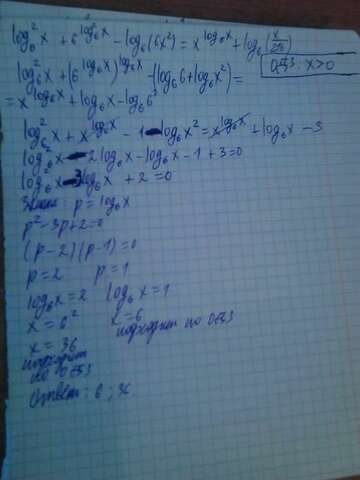 log₆²x + 6^(log₆²x) − log₆(6x²) = x^(log₆x) + log₆(x/216)
log₆²x + (6^(log₆x))^(log₆x) − (log₆6 + log₆x²) =
ОДЗ: x>0
= x^(log₆x) + log₆x − log₆6³
log₆²x + x^(log₆x) − 1 − log₆x² = x^(log₆x) + log₆x − 3
log₆²x − 2log₆x − log₆x − 1 + 3 = 0
log₆²x − 3log₆x + 2 = 0
p = log₆x
p² − 3p + 2 = 0
(p − 2)(p − 1) = 0
p = 2 p = 1
log₆x = 2 log₆x = 1
x = 6² x = 6
подходит по ОДЗ
x = 36
подходит
по ОДЗ
Ответ: 6; 36